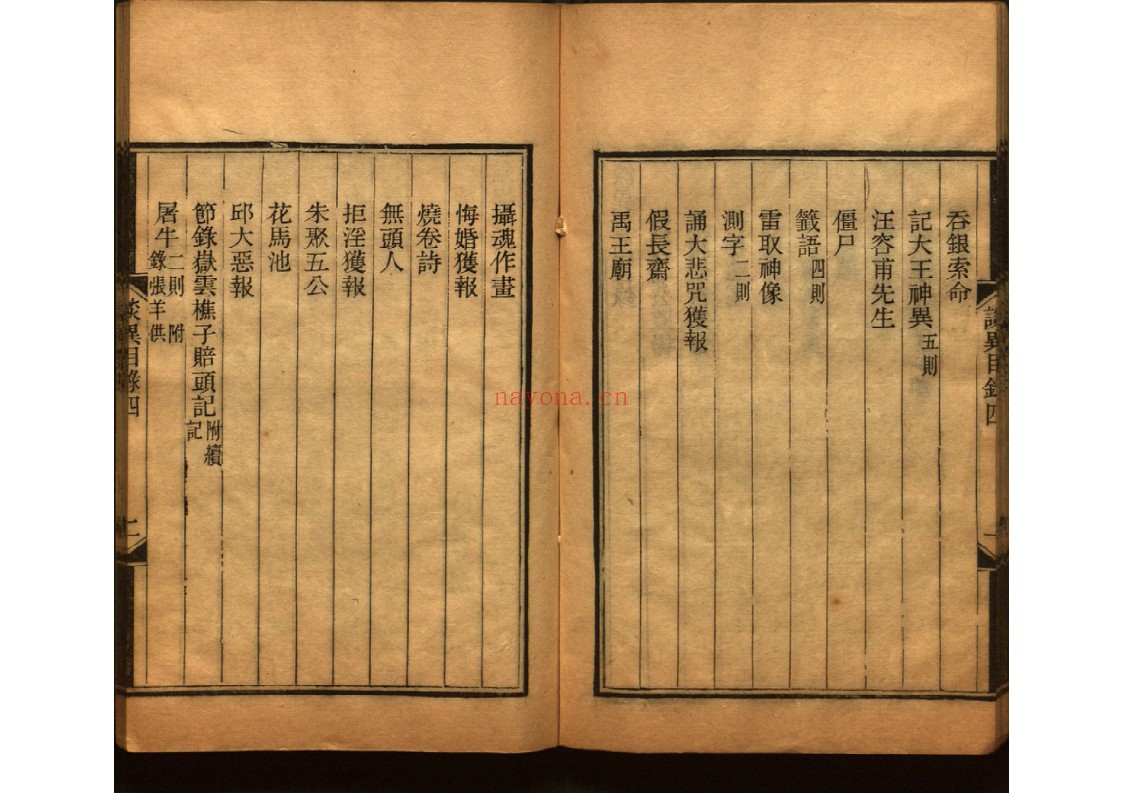 吞銀索命
記大王神異五則
汪容甫先生
僵尸
籤語四則
雷取神像
測字二則
誦大悲咒獲報
假長齋
禹王廟
談異目錄四
一
攝魂作畫
悔婚獲報
燒卷詩
無頭人
拒淫獲報
朱聚五公
花馬池
邱大惡報
節錄嶽雲樵子賠頭記附續記
屠牛二則附錄張羊供
談異目錄四
二
nayona.cn